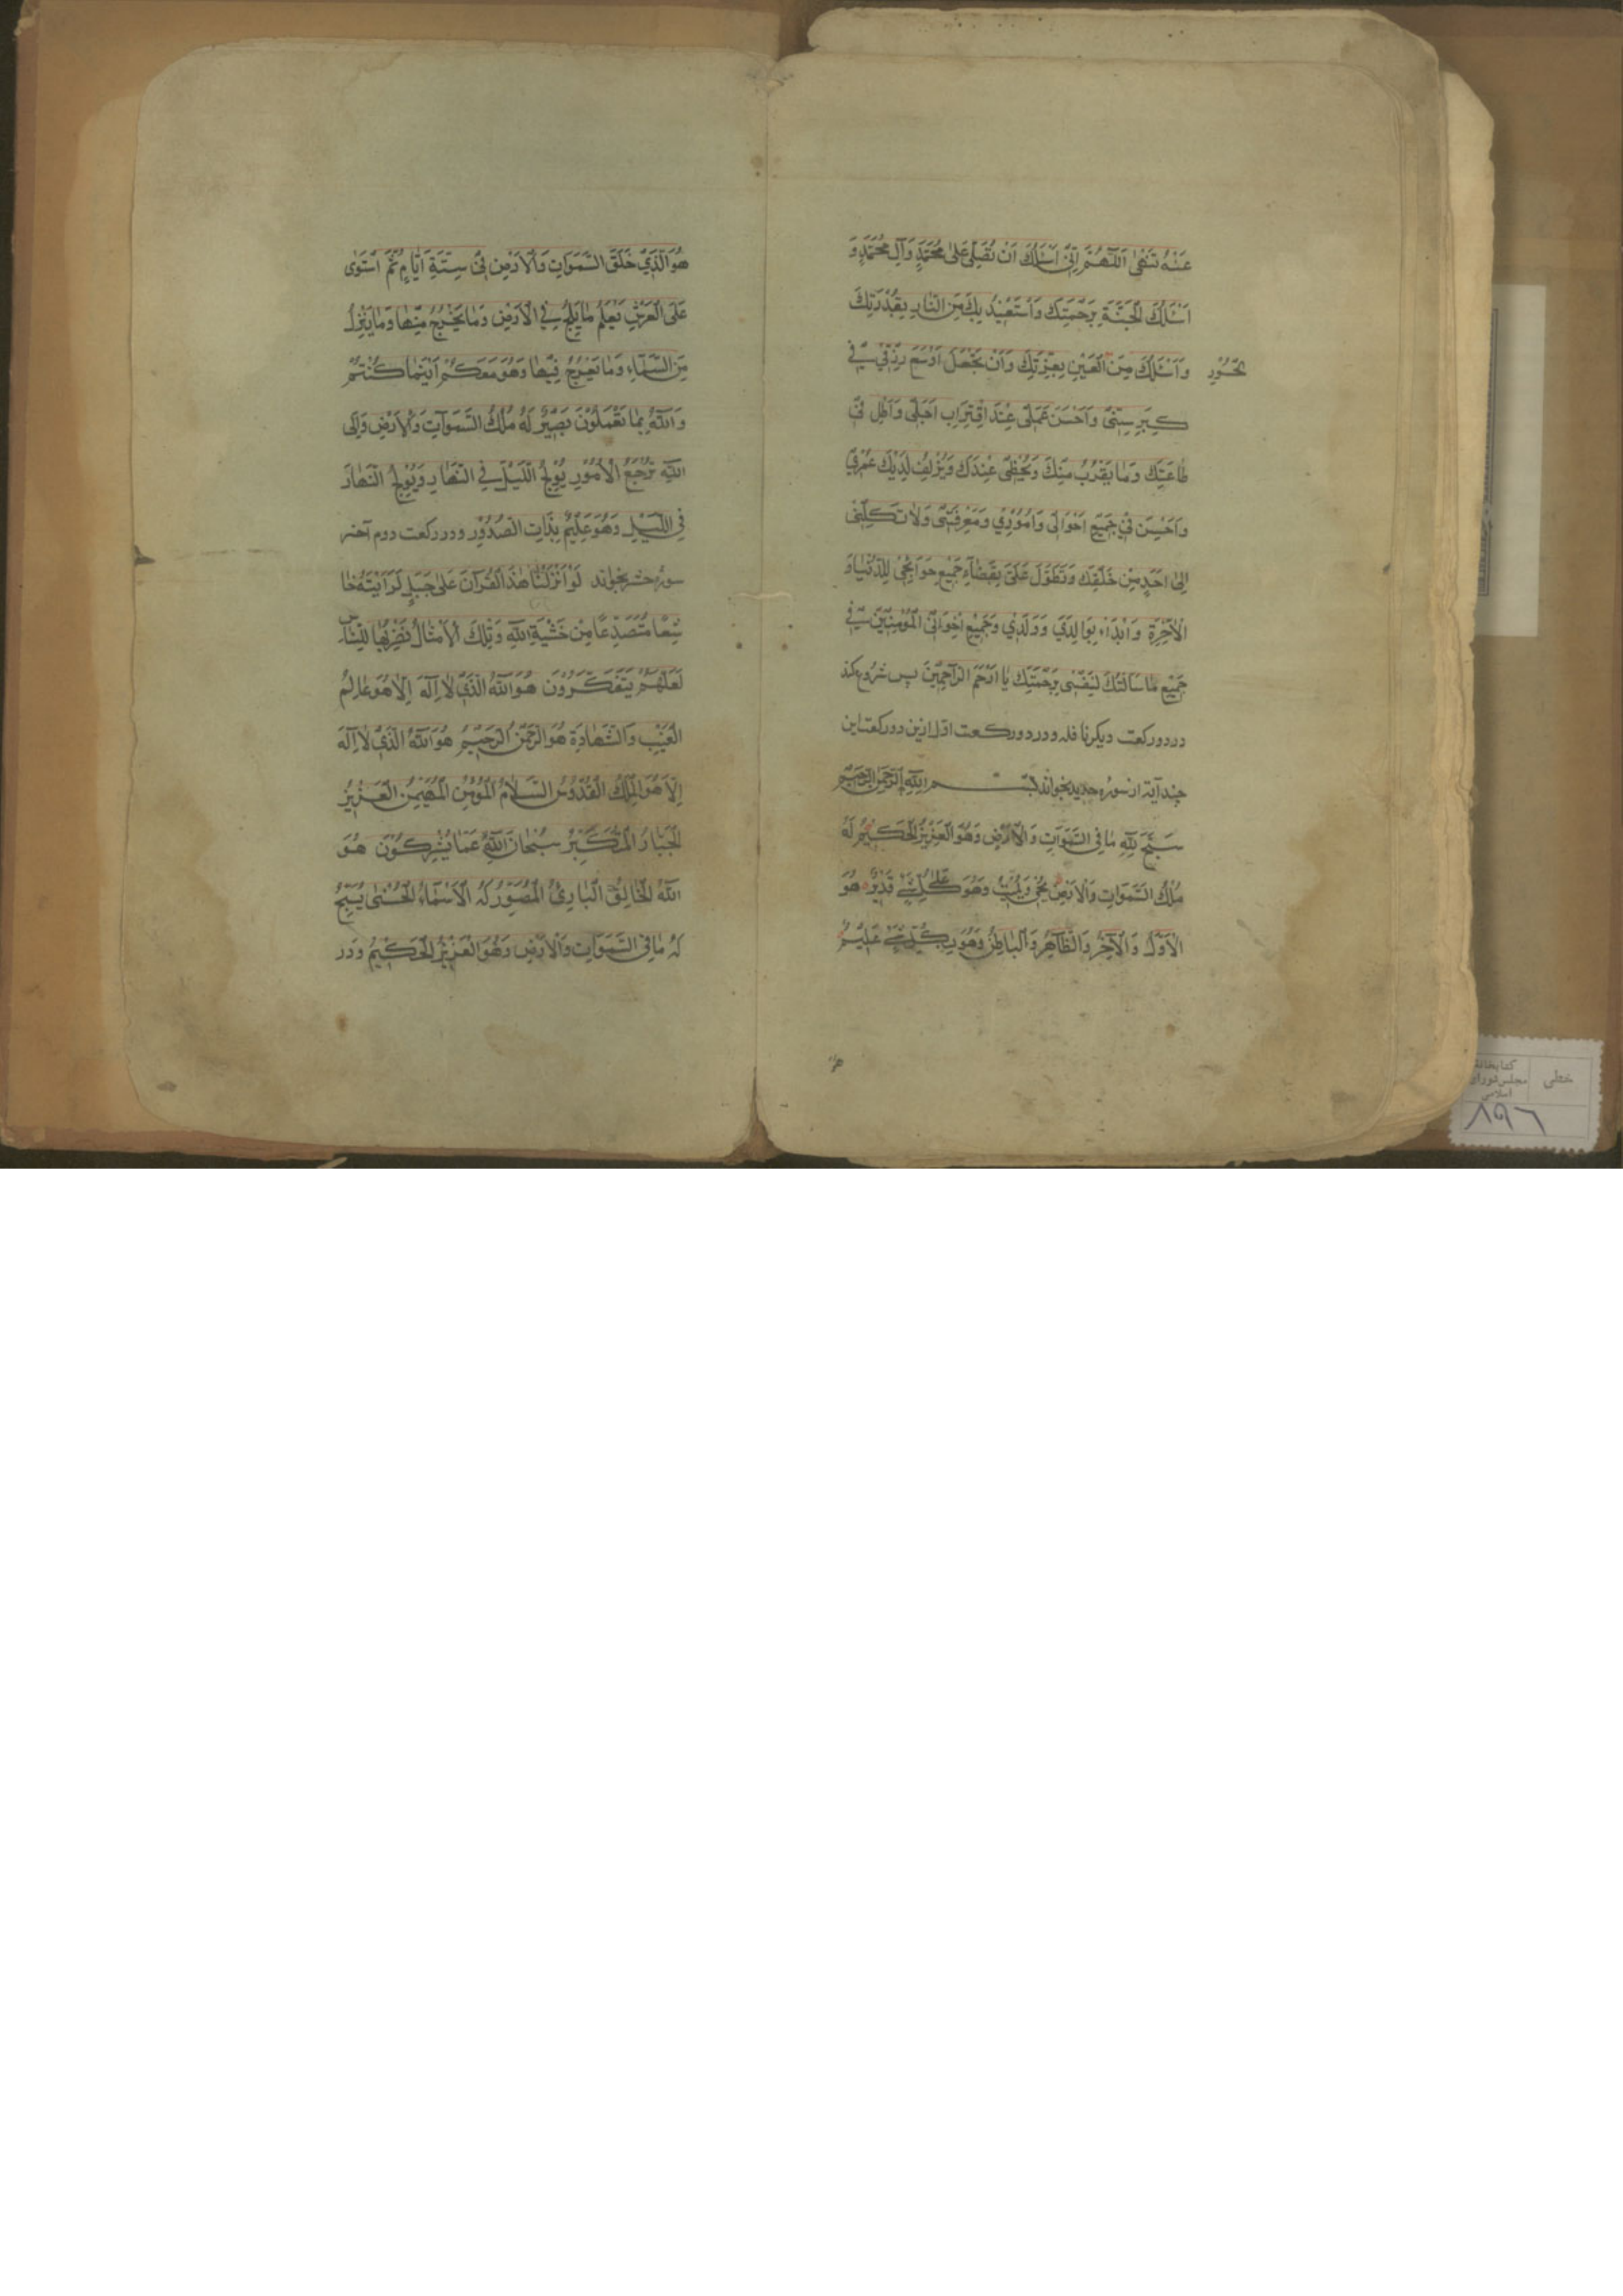 عَنْهُ تَنْهٰى اَللّٰهُمَّ اِنّٖى اَسْئَلُكَ اَنْ تُصَلِّىَ عَلٰى مُحَمَّدٍ وَآلِ مُحَمَّدٍ وَ
اَسْئَلُكَ الْجَنَّةَ بِرَحْمَتِكَ وَاَسْتَعٖيذُ بِكَ مِنَ النّٰارِ بِقُدْرَتِكَ
وَاَسْئَلُكَ مِنَ الْعٖينِ بِعِزَّتِكَ وَاَنْ تَجْعَلَ اَوْسَعَ رِزْقٖي فٖي
بحُورِ
كِبَرِ سِنّٖى وَاَحْسَنَ عَمَلٖى عِنْدَ اقْتِرٰابِ اَجَلٖى وَاَطِلْ فٖى
طٰاعَتِكَ وَمٰا يُقَرِّبُ مِنْكَ وَيُحْظٖى عِنْدَكَ وَيُزْلِفُ لَدَيْكَ عُمْرٖي
وَاَحْسِنْ فٖي جَمٖيعِ اَحْوٰالٖى وَاُمُورٖي وَمَعْرِفَتٖى وَلٰا تَكِلْنٖى
اِلٰى اَحَدٍ مِنْ خَلْقِكَ وَتَطَوَّلْ عَلَىَّ بِقَضٰٓاءِ جَمٖيعِ حَوٰائِجٖى لِلدُّنْيٰا وَ
الْاٰخِرَةِ وَابْدَاْ بِوٰالِدَيَّ وَوُلْدٖي وَجَمٖيعِ اِخْوٰانِى الْمُؤْمِنٖينَ فٖي
جَمٖيعِ مٰا سَاَلْتُكَ لِنَفْسٖى بِرَحْمَتِكَ يٰا اَرْحَمَ الرّٰاحِمٖينَ پس شروع كند
در دو ركعت ديكر نافله و در دو ركعت اول ازين دو ركعت اين
چند آية از سوره حديد بخواند بسم الله الرحمن الرحيم
سَبَّحَ لِلّٰهِ مٰا فِى السَّمَوٰاتِ وَالْاَرْضِ وَهُوَ الْعَزٖيزُ الْحَكٖيمُ لَهُ
مُلْكُ السَّمَوٰاتِ وَالْاَرْضِ يُحْيٖ وَيُمٖيتُ وَهُوَ عَلٰى كُلِّ شَيْءٍ قَدٖيرٌ هُوَ
الْاَوَّلُ وَالْاٰخِرُ وَالظّٰاهِرُ وَالْبٰاطِنُ وَهُوَ بِكُلِّ شَيْءٍ عَلٖيمٌ
هُوَ
هُوَ الَّذٖي خَلَقَ السَّمَوٰاتِ وَالْاَرْضَ فٖى سِتَّةِ اَيّٰامٍ ثُمَّ اسْتَوٰى
عَلَى الْعَرْشِ يَعْلَمُ مٰا يَلِجُ فِي الْاَرْضِ وَمٰا يَخْرُجُ مِنْهٰا وَمٰا يَنْزِلُ
مِنَ السَّمٰٓاءِ وَمٰا يَعْرُجُ فٖيهٰا وَهُوَ مَعَكُمْ اَيْنَمٰا كُنْتُمْ
وَاللّٰهُ بِمٰا تَعْمَلُونَ بَصٖيرٌ لَهُ مُلْكُ السَّمَوٰاتِ وَالْاَرْضِ وَاِلَى
اللّٰهِ تُرْجَعُ الْاُمُورُ يُولِجُ اللَّيْلَ فِي النَّهٰارِ وَيُولِجُ النَّهٰارَ
فِى اللَّيْلِ وَهُوَ عَلٖيمٌ بِذٰاتِ الصُّدُورِ و در ركعت دوم آخر
سورهٔ حشر بخواند لَوْ اَنْزَلْنٰا هٰذَا الْقُرْآنَ عَلٰى جَبَلٍ لَرَاَيْتَهُ خٰا
شِعًا مُتَصَدِّعًا مِنْ خَشْيَةِ اللّٰهِ وَتِلْكَ الْاَمْثٰالُ نَضْرِبُهٰا لِلنّٰاسِ
لَعَلَّهُمْ يَتَفَكَّرُونَ هُوَ اللّٰهُ الَّذٖي لٰا اِلٰهَ اِلّٰا هُوَ عٰالِمُ
الْغَيْبِ وَالشَّهٰادَةِ هُوَ الرَّحْمٰنُ الرَّحٖيمُ هُوَ اللّٰهُ الَّذٖي لٰا اِلٰهَ
اِلّٰا هُوَ الْمَلِكُ الْقُدُّوسُ السَّلٰامُ الْمُؤْمِنُ الْمُهَيْمِنُ الْعَزٖيزُ
الْجَبّٰارُ الْمُتَكَبِّرُ سُبْحٰانَ اللّٰهِ عَمّٰا يُشْرِكُونَ هُوَ
اللّٰهُ الْخٰالِقُ الْبٰارِئُ الْمُصَوِّرُ لَهُ الْاَسْمٰٓاءُ الْحُسْنٰى يُسَبِّحُ
لَهُ مٰا فِى السَّمَوٰاتِ وَالْاَرْضِ وَهُوَ الْعَزٖيزُ الْحَكٖيمُ و در
خطی
كتابخانه
مجلس شورای
اسلامی
۸۹۶